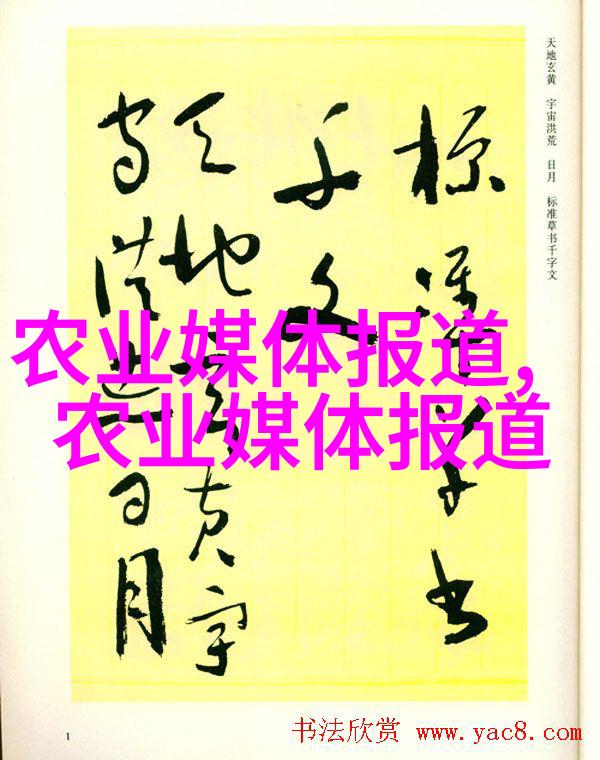 天地玄黄 宇宙洪荒 日月 标准草书千字文
标准草书
千文
天地玄黄宇
宙洪荒日月
农业媒体报道,
农业媒体报道
1
书法欣赏 www.yac8.com